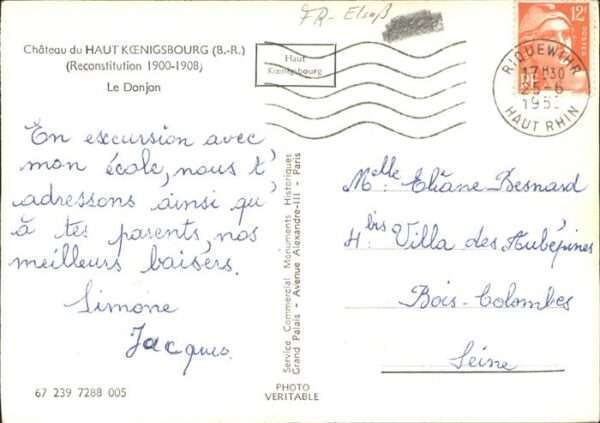 FR - Elsaß
Château du HAUT KŒNIGSBOURG (B.-R.)
(Reconstitution 1900-1908)
Le Donjon
Haut
Kœnigsbourg
12F
RIQUEWIHR
17H30
25-6
HAUT RHIN
En excursion avec
mon école, nous t'
adressons ainsi qu'
à tes parents, nos
meilleurs baisers.
Simone
Jacques.
67 239 7288 005
Service Commercial Monuments Historiques
Grand Palais - Avenue Alexandre-III - Paris
PHOTO
VERITABLE
Melle Eliane Besnard
4 bis Villa des Aubépines
Bois-Colombes
Seine